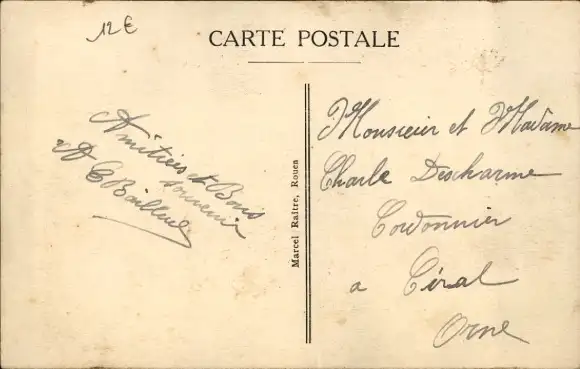 12 €
CARTE POSTALE
Amitiés et Bons
souvenir
A E Bailleul
Marcel Raitre, Rouen
Monsieur et Madame
Charle Descharme
Cordonnier
a Ciral
Orne